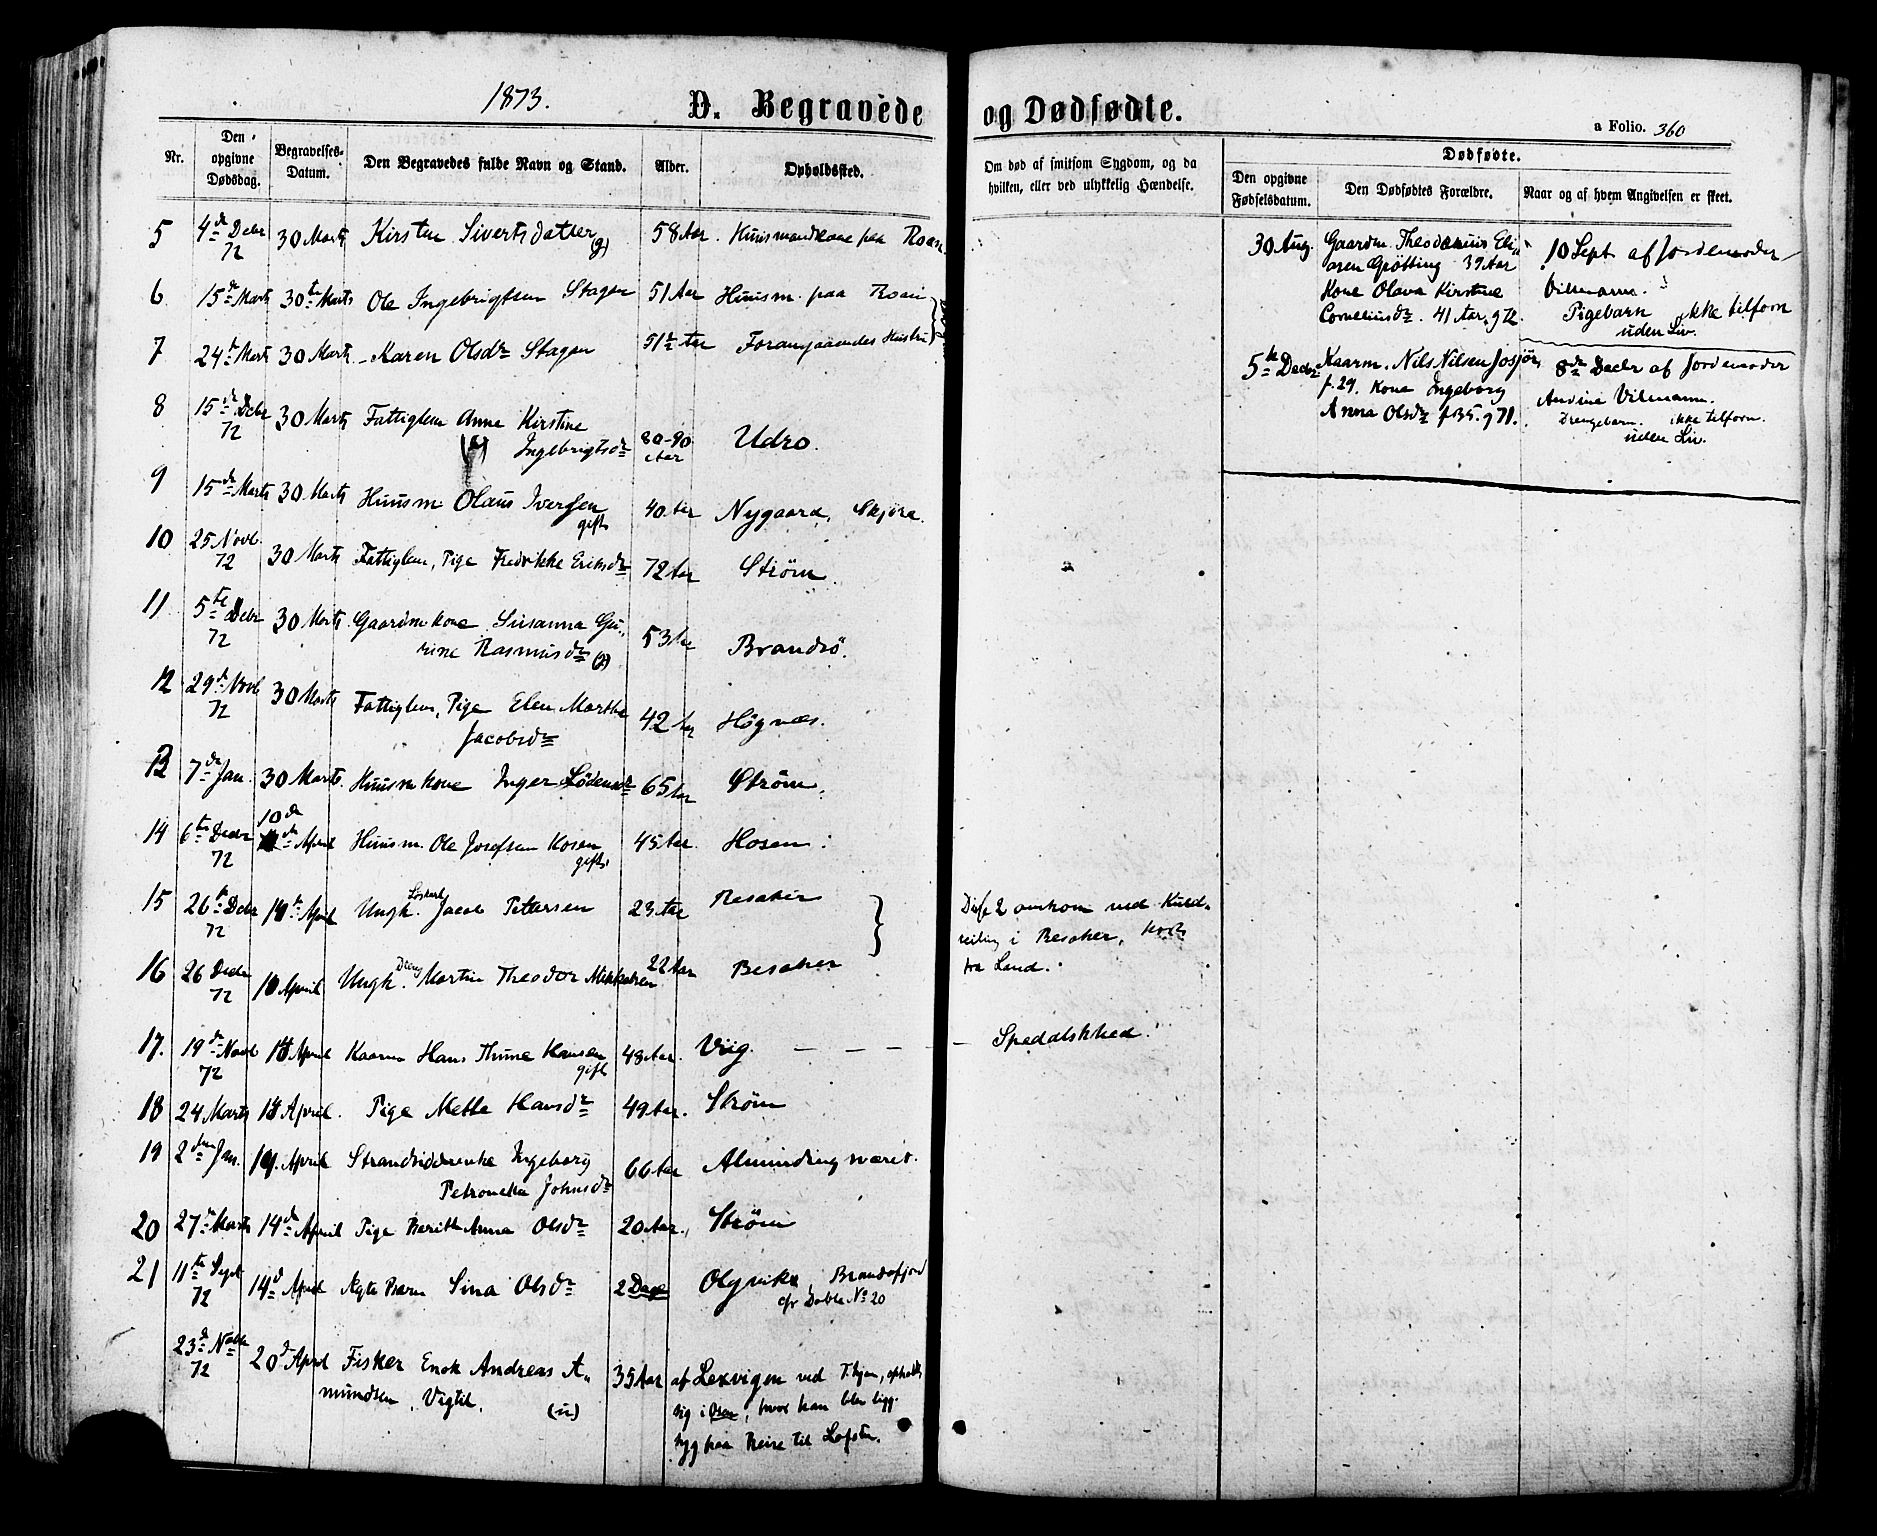 1873.
D. Begravede og Dødfødte.
a Folio. 360
Nr.
Den opgivne Dødsdag.
Begravelses-Datum.
Den Begravedes fulde Navn og Stand.
Alder.
Opholdssted.
Om død af smitsom Sygdom, og da hvilken, eller ved ulykkelig Hændelse.
Dødfødte.
Den opgivne Fødselsdatum.
Den Dødfødtes Forældre.
Naar og af hvem Angivelsen er skeet.
5 4de Decbr 72 30 Marts Kirsten Sivertsdatter (g) 58 Aar. Huusmandkone paa Roan
6 15de Marts 30te Marts Ole Ingebrigtsen Stagen 51 Aar Huusm. paa Roan
7 24de Marts 30 Marts Karen Olsdr Stagen 51 Aar Forangaaendes Hustru
8 15de Decbr 72 30 Marts Fattiglem Anne Kirstine
Ingebrigtsdr 80-90 Aar Udro.
9 15de Marts 30 Marts Huusm Olaus Iversen gift 40 Aar Nygaard, Skjøra.
10 25 Novb. 72 30 Marts Fattiglem, Pige Fredrikke Eriksdr 72 Aar Strøm.
11 5te Decbr 72 30 Marts Gaardmkone Susanna Gu-
rine Rasmusdr (g) 53 Aar Brandsø.
12 29de Novb 72 30 Marts Fattiglem, Pige Elen Martha
Jacobsdr 42 Aar Høgnæs.
13 7de Jan. 30 Marts. Huusmkone Inger 65 Aar Strøm.
14 6te Decbr 72 10de April Huusm. Ole Josefsen Hosen gift. 45 Aar. Hosen.
15 26te Decbr 72 April Ungk. Løskarl Jacob Pettersen 23 Aar Besaker
16 26 Decbr 72 April Ungk. Dreng Martin Theodor Mikkelsen 22 Aar Besaker
Disse 2 omkom ved Kuld-
seiling i Besaker, kort
fra Land.
17. 19de Novb 72 April Kaarm Hans Thune Hansen gift 48 Aar. Viig. — — — — Spedalskhed.
18 24 Marts April. Pige Mette Hansdr 49 Aar. Strøm
19 2den Jan. April Strandsidderenke Ingeborg
Petronella Johnsdr 66 Aar Almindingsværet.
20 27de Marts 14de April Pige Berith Anna Olsdr 20 Aar. Strøm
21 11te Sept 72 14d April Ægte Barn Sina Olsdr 2 Dage Olsvika, Brandsfjord
cfr Døbte No 20
23de Novbr 72 20de April Fisker Enok Andreas A-
mundsen, Vigtil. (u) 35 Aar af Lexvigen ved T.hjem, opholdt
sig i Osen, hvor han blev ligg.
syg paa Reise til Lofoten.
30 Aug. Gaardm. Theodorius Eli-
asen Grøtting 39 Aar
Kone Olava Kirstine
Corneliusdr. 41 Aar, g 72.
10 Sept af Jordemoder
Vilmann.
Pigebarn ikke tilforn
uden Liv.
5te Decbr Kaarm. Nils Nilsen Josjør
f. 29. Kone Ingeborg
Anna Olsdr f. 35. g 71.
8de Decbr af Jordemoder
Andrine Vilmann.
Drengebarn. ikke tilforn.
uden Liv.